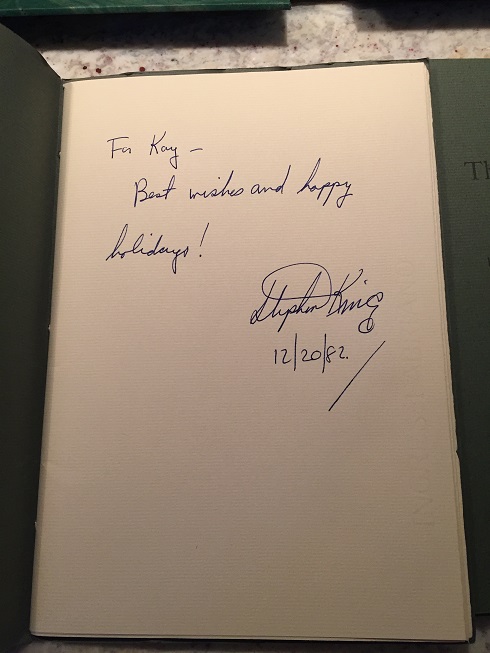 For Kay –
Best wishes and happy
holidays!
Stephen King
12/20/82.
Th